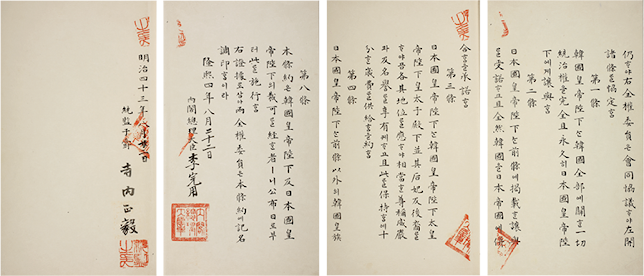 仍ᄒᆞ야右全權委員은會同協議ᄒᆞ야左開
諸條를協定홈
第一條
韓國皇帝陛下는韓國全部에關ᄒᆞᆫ一切
統治權을完全且永久히日本國皇帝陛
下에게讓與홈
第二條
日本國皇帝陛下는前條에揭載ᄒᆞᆫ讓與
를受諾ᄒᆞ고且全然韓國을日本帝國에併
合홈을承諾홈
第三條
日本國皇帝陛下는韓國皇帝陛下太皇
帝陛下皇太子殿下並其后妃及後裔로
ᄒᆞ야곰各其地位를應ᄒᆞ야相當ᄒᆞᆫ尊稱威嚴
과及名譽를享有케ᄒᆞ고且此를保持ᄒᆞ기에十
分ᄒᆞᆫ歲費를供給홈을約홈
第四條
日本國皇帝陛下는前條以外의韓國皇族
第八條
本條約은韓國皇帝陛下及日本國皇
帝陛下의裁可를經ᄒᆞᆫ者이니公布日로부
터此를施行홈
右證據로삼아兩全權委員은本條約에記名
調印ᄒᆞᆷ이라
隆熙四年八月二十二日
內閣總理大臣 李完用
明治四十三年八月廿二日
統監子爵 寺內正毅